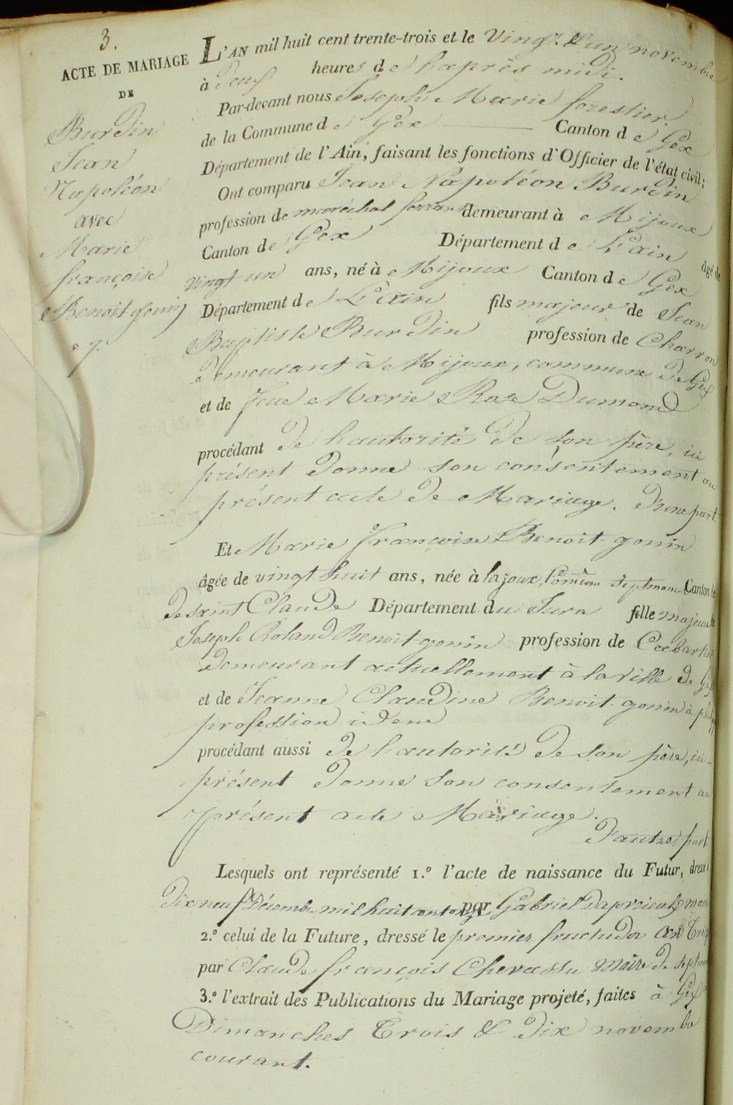 3.
ACTE DE MARIAGE
DE
Burdin
Jean
Napoléon
avec
Marie
françoise
Benoit gonin
L'AN mil huit cent trente-trois et le Vingt & un novembre
à heures de l'après midi.
Par-devant nous Joseph Marie forestier
de la Commune de Gex Canton de Gex
Département de l'Ain, faisant les fonctions d'Officier de l'état civil;
Ont comparu Jean Napoléon Burdin
profession de maréchal ferrant demeurant à Mijoux
Canton de Gex Département de L'ain âgé de
vingt un ans, né à Mijoux Canton de Gex
Département de L'ain fils majeur de Jean
Baptiste Burdin profession de Charron
demeurant à Mijoux, commune de Gex
et de feue Marie Rose Dumond
procédant de l'autorité de son père, ici
présent donne son consentement au
présent acte de Mariage. D'une part
Et Marie françoise Benoit gonin
âgée de vingt huit ans, née à lajoux, Canton
de saint Claude Département du Jura fille majeure de
Joseph Roland Benoit gonin profession de
demeurant actuellement à la ville de Gex
et de Jeanne Claudine Benoit gonin
profession idem
procédant aussi de l'autorité de son père, ici
présent donne son consentement au
présent acte Mariage.
D'autre part.
Lesquels ont représenté 1.º l'acte de naissance du Futur, dressé
Dix neuf Décembre mil huit cent par Gabriel
2.º celui de la Future, dressé le premier fructidor an
par Claude françois Chevassu Maire de
3.º l'extrait des Publications du Mariage projeté, faites à Gex
Dimanches Trois & Dix novembre
courant.